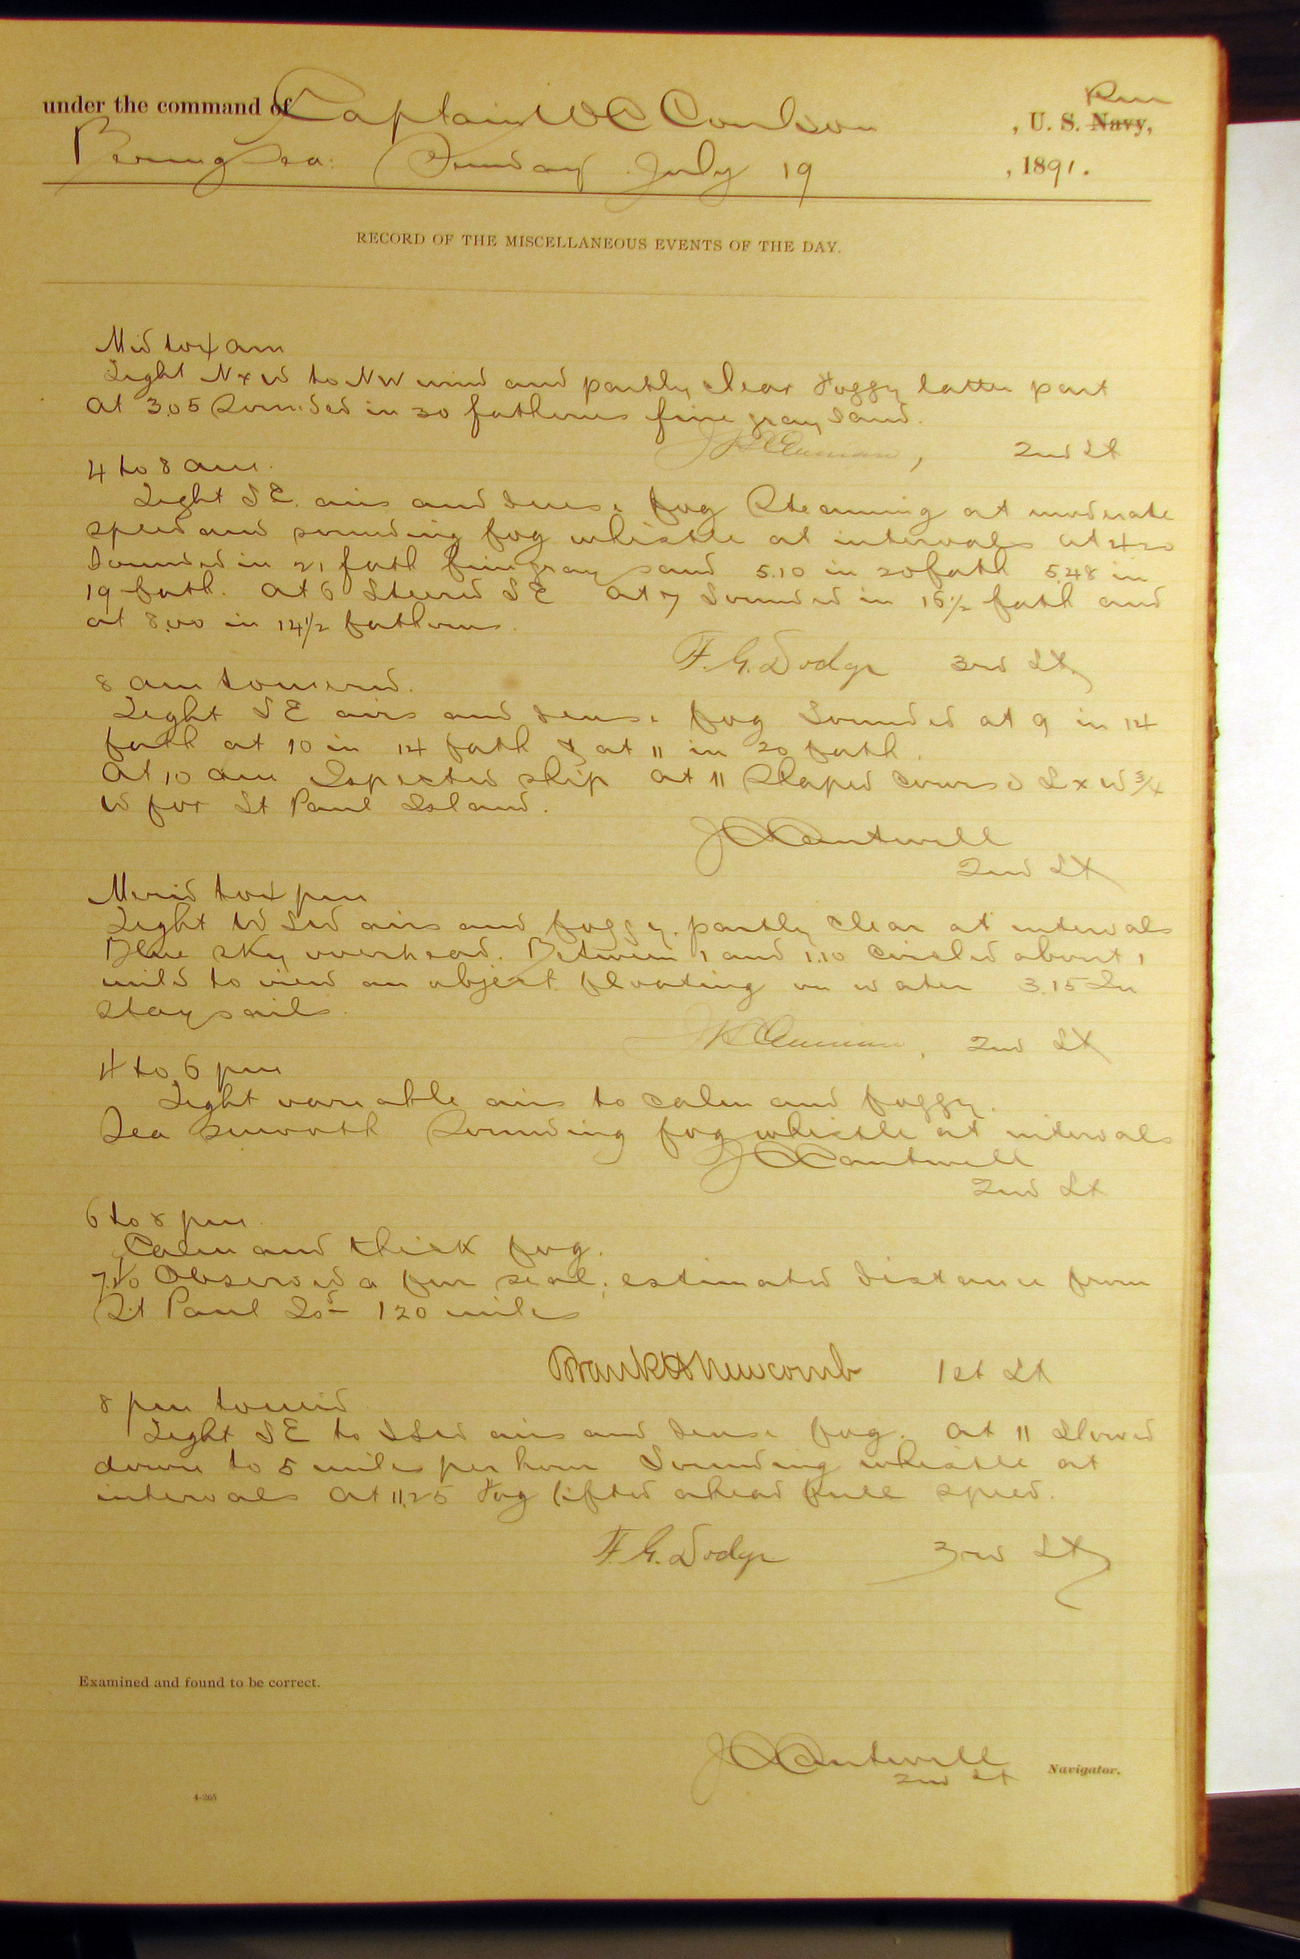 under the command of Captain W C Coulson , U. S. Navy, Rm
Bering Sea: Sunday July 19 , 1891.
RECORD OF THE MISCELLANEOUS EVENTS OF THE DAY.
Mid to 4 am
Light N x W to NW wind and partly clear Foggy latter part
At 3.05 Sounded in 30 fathoms fine gray sand.
2nd Lt
4 to 8 am.
Light SE. airs and dense fog Steaming at moderate
speed and sounding fog whistle at intervals At 4 20
Sounded in 21 fath fine gray sand 5.10 in 20 fath 5.48 in
19 fath. At 6 Steered SE At 7 Sounded in 16 1/2 fath and
at 8.00 in 14 1/2 fathoms.
F. G. Dodge 3rd Lt
8 am to merid.
Light SE airs and dense fog Sounded at 9 in 14
fath at 10 in 14 fath & at 11 in 20 fath.
At 10 am Ispected ship At 11 Shaped course S x W 3/4
W for St Paul Island.
J C Cantwell
2nd Lt
Merid to 4 pm
Light W SW airs and foggy. partly clear at intervals
Blue sky overhead. Between 1 and 1.10 circled about 1
mile to view an object floating on water 3.15 In
staysails.
2nd Lt
4 to 6 pm
Light variable airs to calm and foggy.
Sea smooth Sounding fog whistle at intervals
J C Cantwell
2nd Lt
6 to 8 pm.
Calm and thick fog.
Observed a fur seal; estimated distance from
St Paul Isd 120 miles
Frank H Newcomb 1st Lt
8 pm to mid
Light SE to SSW airs and dense fog. At 11 Slowed
down to 5 miles per hour Sounding whistle at
intervals At 11.25 Fog lifted ahead full speed.
F. G. Dodge 3rd Lt
Examined and found to be correct.
J C Cantwell
2nd Lt Navigator.
4-265